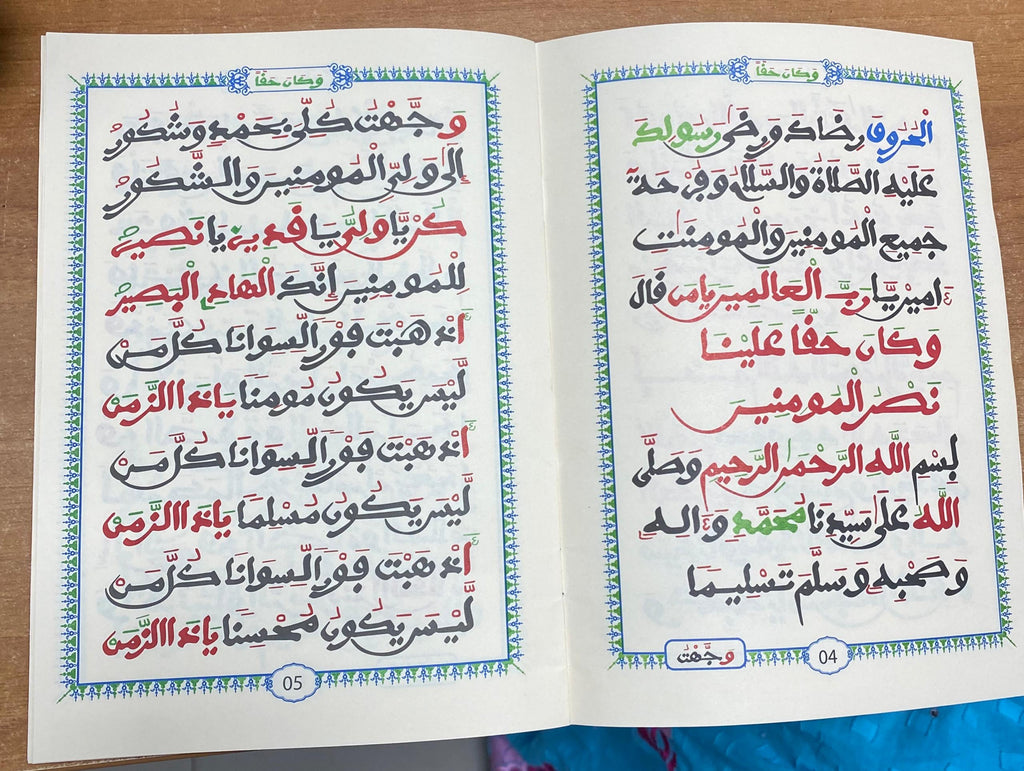 وَكَانَ حَقّاً
الْحُرُوفِ رِضَاكَ وَرِضَى رَسُولِكَ
عَلَيْهِ الصَّلَاةُ وَالسَّلَامُ وَفِي حَقِّ
جَمِيعِ الْمُومِنِينَ وَالْمُومِنَتِ
ءَامِين يَا رَبَّ الْعَالَمِينَ يَا مَن قَالَ
وَكَانَ حَقّاً عَلَيْنَا
نَصْرُ الْمُومِنِينَ
بِسْمِ اللَّهِ الرَّحْمَنِ الرَّحِيمِ وَصَلَّى
اللَّهُ عَلَى سَيِّدِنَا مُحَمَّدٍ وَءَالِهِ
وَصَحْبِهِ وَسَلَّمَ تَسْلِيمَا
وَجَّهْتُ
04
وَكَانَ حَقّاً
وَجَّهْتُ كُلِّي بِحَمْدٍ وَشُكُورْ
إِلَى وَلِيِّ الْمُومِنِينَ وَالشَّكُورْ
كُن لِي يَا وَلِيُّ يَا قَدِيرُ يَا نَصِيرْ
لِلْمُومِنِينَ إِنَّكَ الْهَادِي الْبَصِيرْ
أَذْهَبْتَ فَوْراً لِسِوَانَا كُلَّ مَنْ
لَّيْسَ يَكُونُ مُومِناً يَا ذَا الزَّمَنْ
أَذْهَبْتَ فَوْراً لِسِوَانَا كُلَّ مَنْ
لَّيْسَ يَكُونُ مُسْلِماً يَا ذَا الزَّمَنْ
أَذْهَبْتَ فَوْراً لِسِوَانَا كُلَّ مَنْ
لَّيْسَ يَكُونُ مُحْسِناً يَا ذَا الزَّمَنْ
05